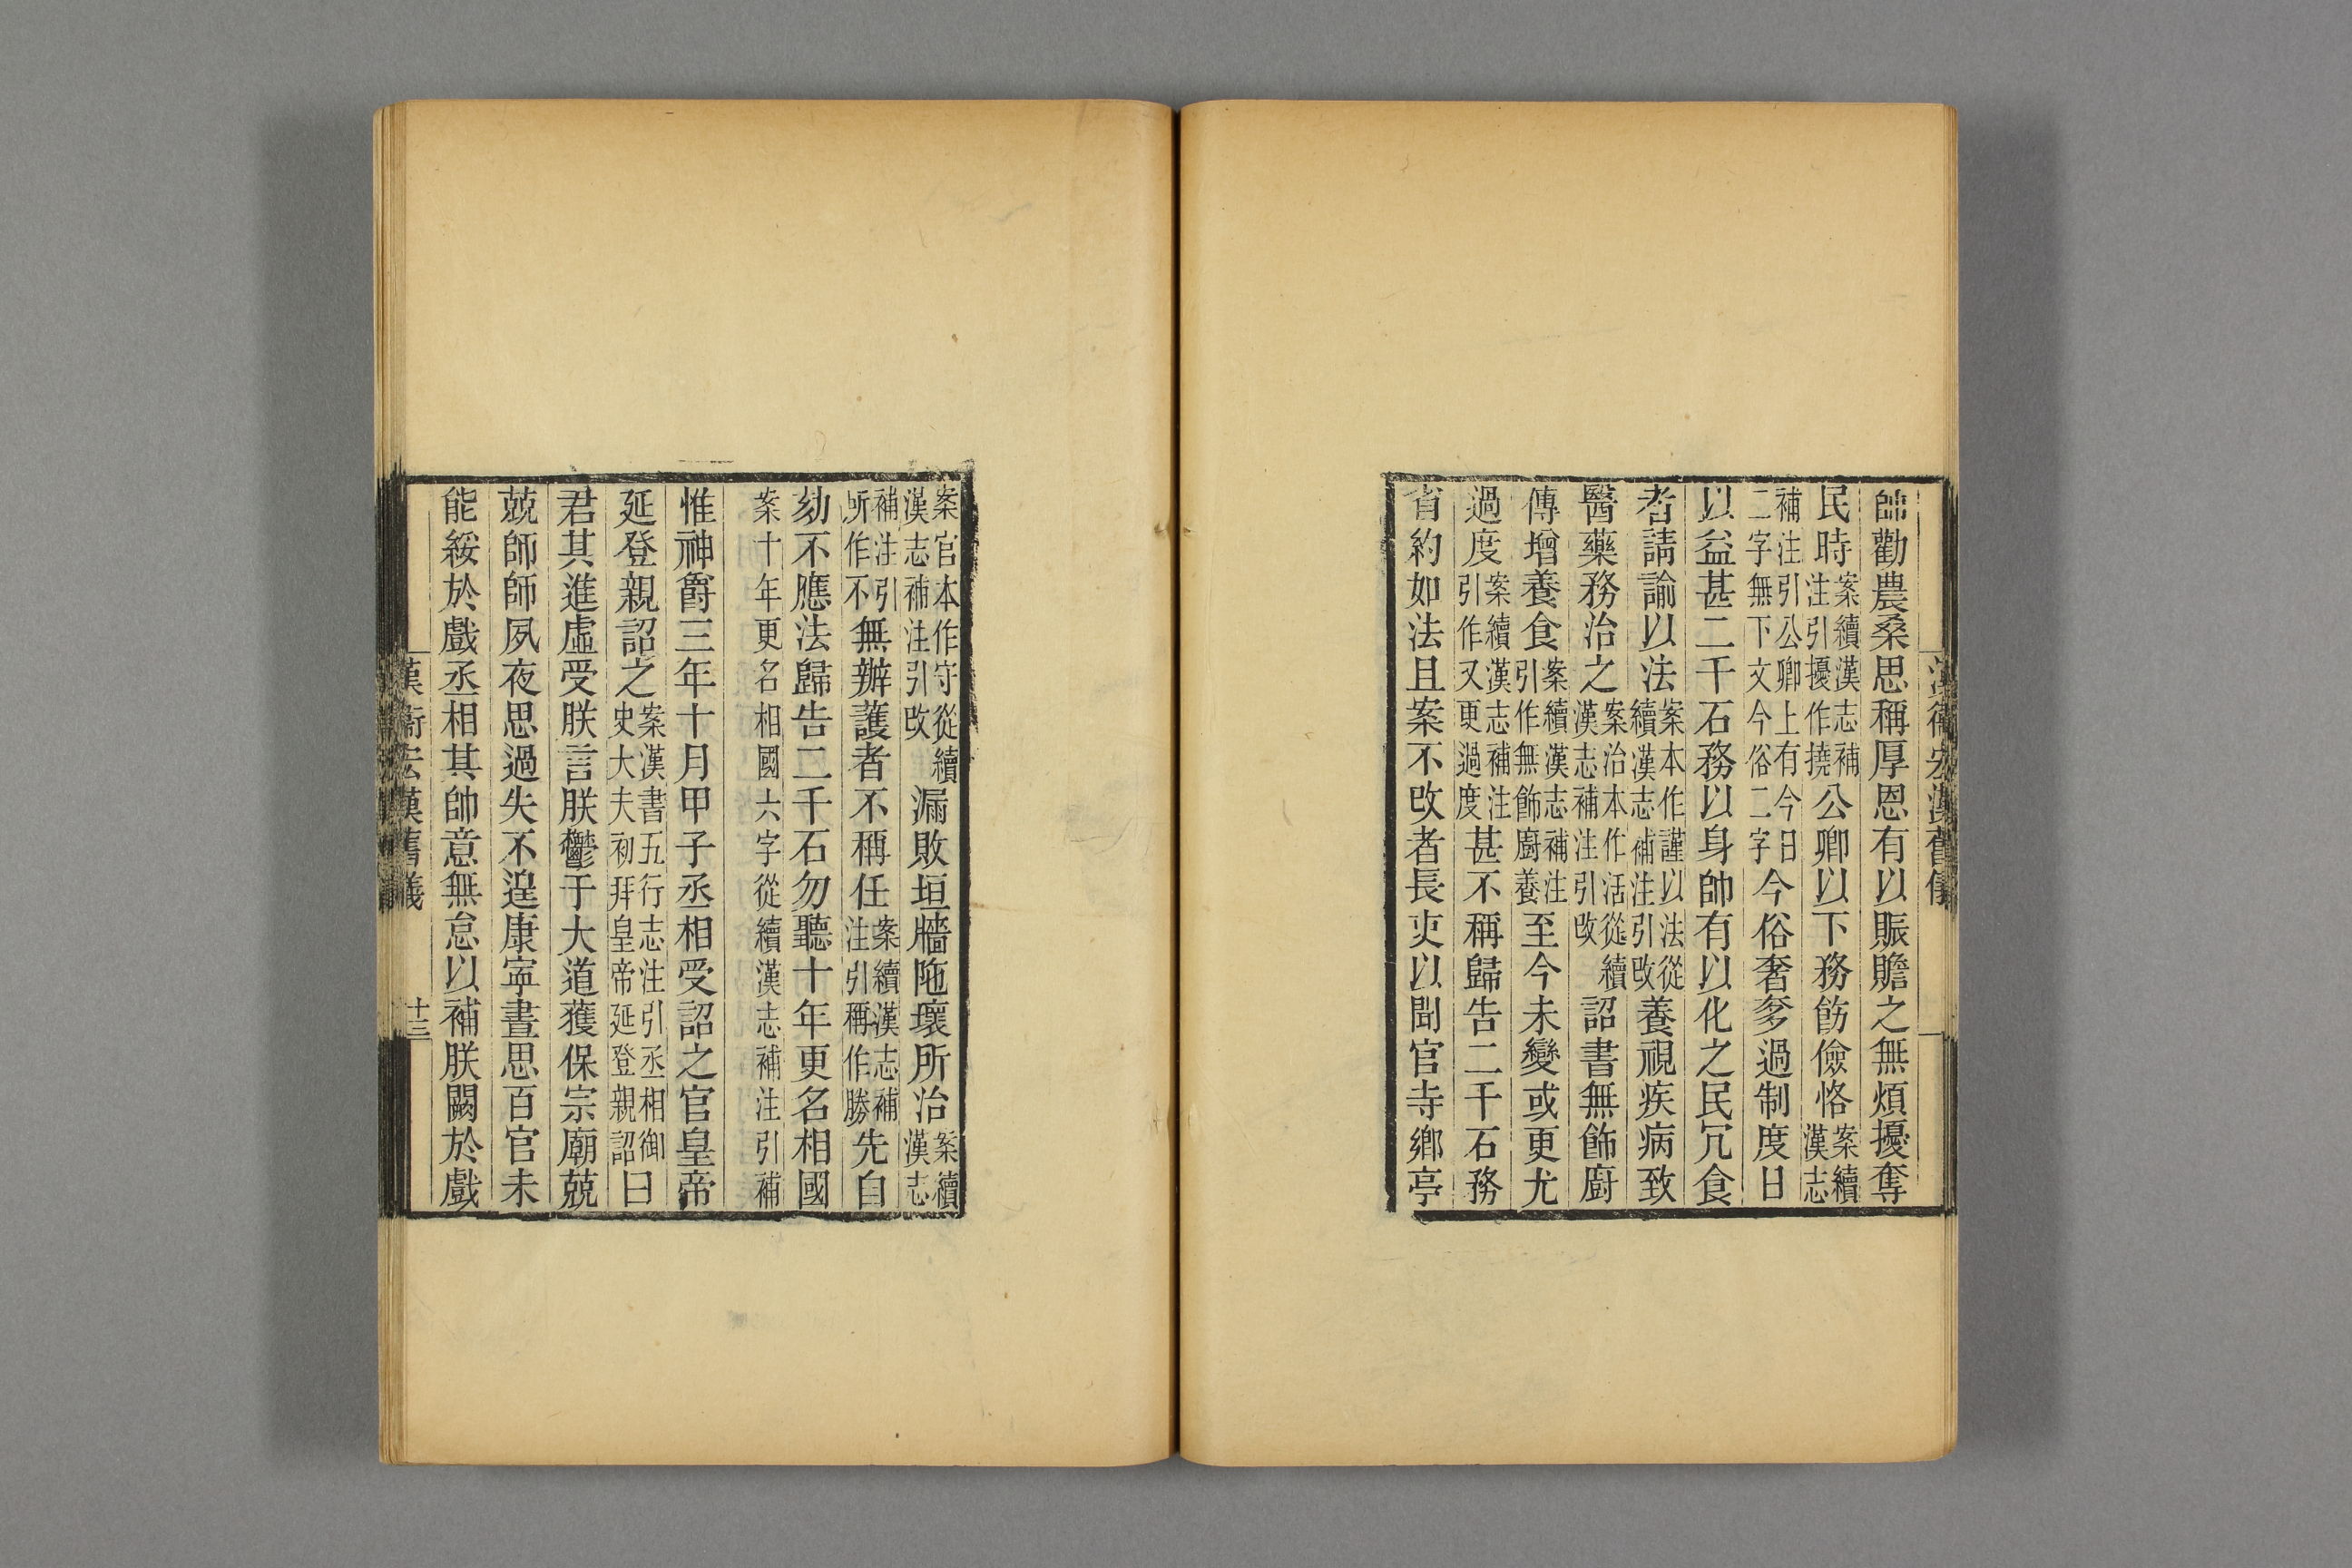 漢衛宏漢舊儀
帥勸農桑思稱厚恩有以賑贍之無煩擾奪
民時案續漢志補注引擾作撓公卿以下務飭儉恪案續漢志
補注引公卿上有今日二字無下文今俗二字今俗奢奓過制度日
以益甚二千石務以身帥有以化之民冗食
者請諭以法案本作謹以法從續漢志補注引改養視疾病致
醫藥務治之案治本作活從續漢志補注引改詔書無飾廚
傳增養食案續漢志補注引作無飾廚養至今未變或更尤
過度案續漢志補注引作又更過度甚不稱歸告二千石務
省約如法且案不改者長吏以聞官寺鄉亭
案官本作守從續漢志補注引改漏敗垣牆阤壞所治案續漢志
補注引所作不無辦護者不稱任案續漢志補注引稱作勝先自
劾不應法歸告二千石勿聽十年更名相國
案十年更名相國六字從續漢志補注引補
惟神爵三年十月甲子丞相受詔之官皇帝
延登親詔之案漢書五行志注引丞相御史大夫初拜皇帝延登親詔曰
君其進虛受朕言朕鬱于大道獲保宗廟兢
兢師師夙夜思過失不遑康寧晝思百官未
能綏於戲丞相其帥意無怠以補朕闕於戲
漢衛宏漢舊儀 十三